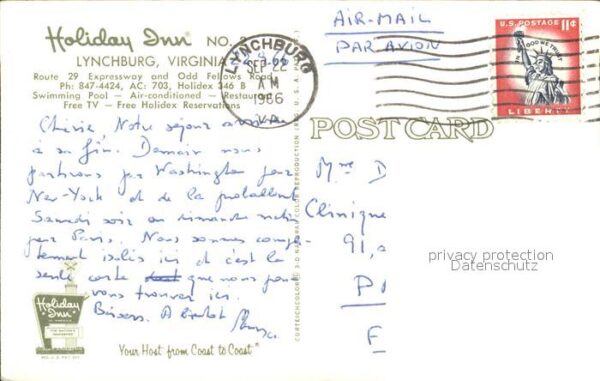 Holiday Inn NO. 2
LYNCHBURG, VIRGINIA
Route 29 Expressway and Odd Fellows Road
Ph: 847-4424, AC: 703, Holidex 346 B
Swimming Pool — Air-conditioning — Restaurant
Free TV — Free Holidex Reservations
LYNCHBURG
SEP 22
AM
1966
VA.
AIR-MAIL
PAR AVION
U.S. POSTAGE 11¢
IN GOD WE TRUST
LIBERTY
POST CARD
Chérie, Notre séjour arrive
à sa fin. Demain nous
partirons par Washington pour
New-York et de là probablement
Samedi soir ou dimanche matin
pour Paris. Nous sommes complè-
tement isolés ici et c'est la
seule carte que nous
vous trouver ici.
Bisers. A bientôt
Mme D
Clinique
91,
P
F
privacy protection
Datenschutz
Holiday
Inn
Your Host from Coast to Coast